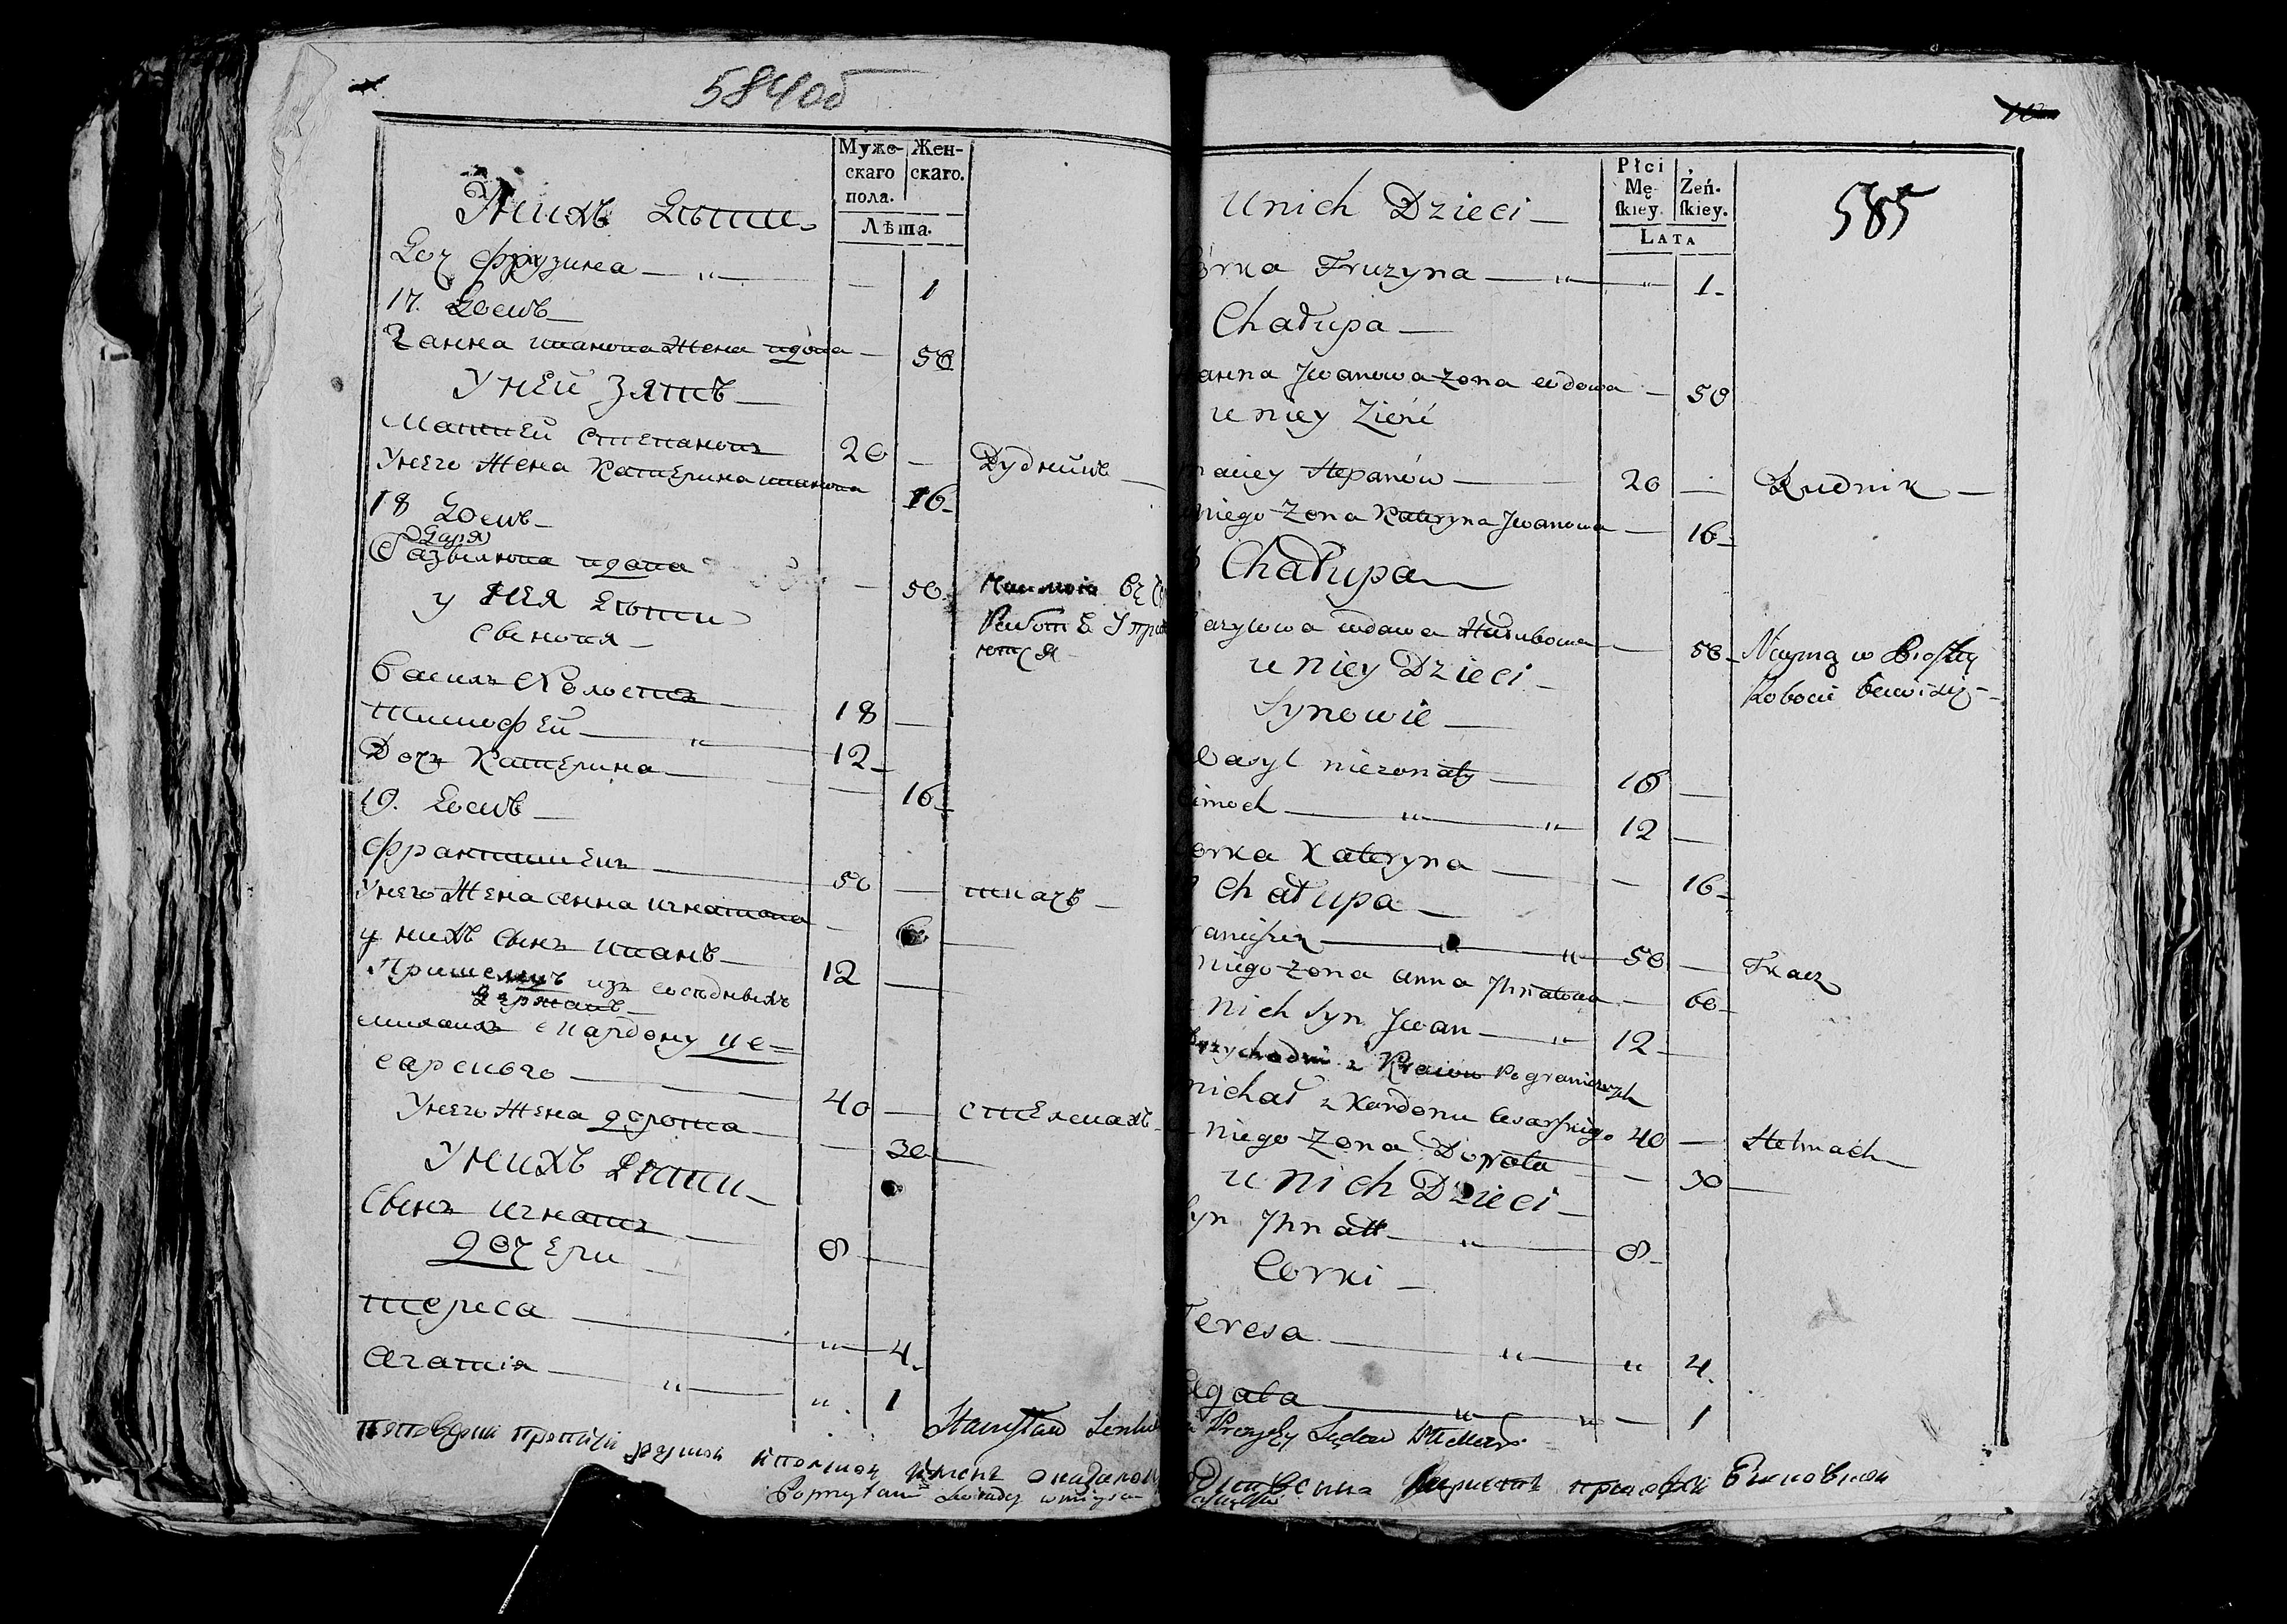 584об
Муже-
скаго
пола.
Жен-
скаго.
Лѣта.
Унихъ Дѣти
Доч Фрузина — „ — — 1
17. Домъ
Ганна иванова жена вдова — 50
У ней зять
Матвей Степановъ 20 — Рудникъ
У него Жена Катерина иванова 16
18 Домъ
Дарія
вдова — 50
у нея дѣти
Сыновя
Василь Холостъ 18 —
Тимофей „ 12
Дочь Катерина — 16
19. Домъ
Францишекъ 50 — ткачъ
У него Жена Анна игнатова — 60
у нихъ Сынъ иванъ 12 —
из соседнихъ
Державъ
Михаилъ с Кардону Це=
сарского 40 — стелмахъ
У него Жена Дорота — 30
У нихъ Дѣти
Сынъ игнатъ 8 —
Дочери
Тереса „ 4.
Агатія „ „ 1
Płci
Mę-
skiey.
Żeń-
skiey.
LATA
585
Unich Dzieci
órka Fruzyna — „ „ 1
Chałupa
anna Jwanowa żona wdowa — 50
u niey Zieńć
aciey Stepanów 20 — Rudnik
niego żona Kateryna Jwanowa — 16
Chałupa
wdowa — 50 w
u niey Dzieci Robocie
Synowie
Wasyl nieżonaty 18 —
imoch „ „ 12 —
órka Kateryna — 16
Chałupa
anciszek „ „ 50 — Tkacz
niego żona anna Jhnatowa — 60
nich syn Jwan „ 12
Przychodni z Kraiów Pogranicznych
michał z Kordonu Cesarskiego 40 — Stelmach
niego Żona Dorota — 30
u nich Dzieci
Syn Jhnatt „ 8
Corki
Teresa „ „ 4.
Agata „ „ — 1